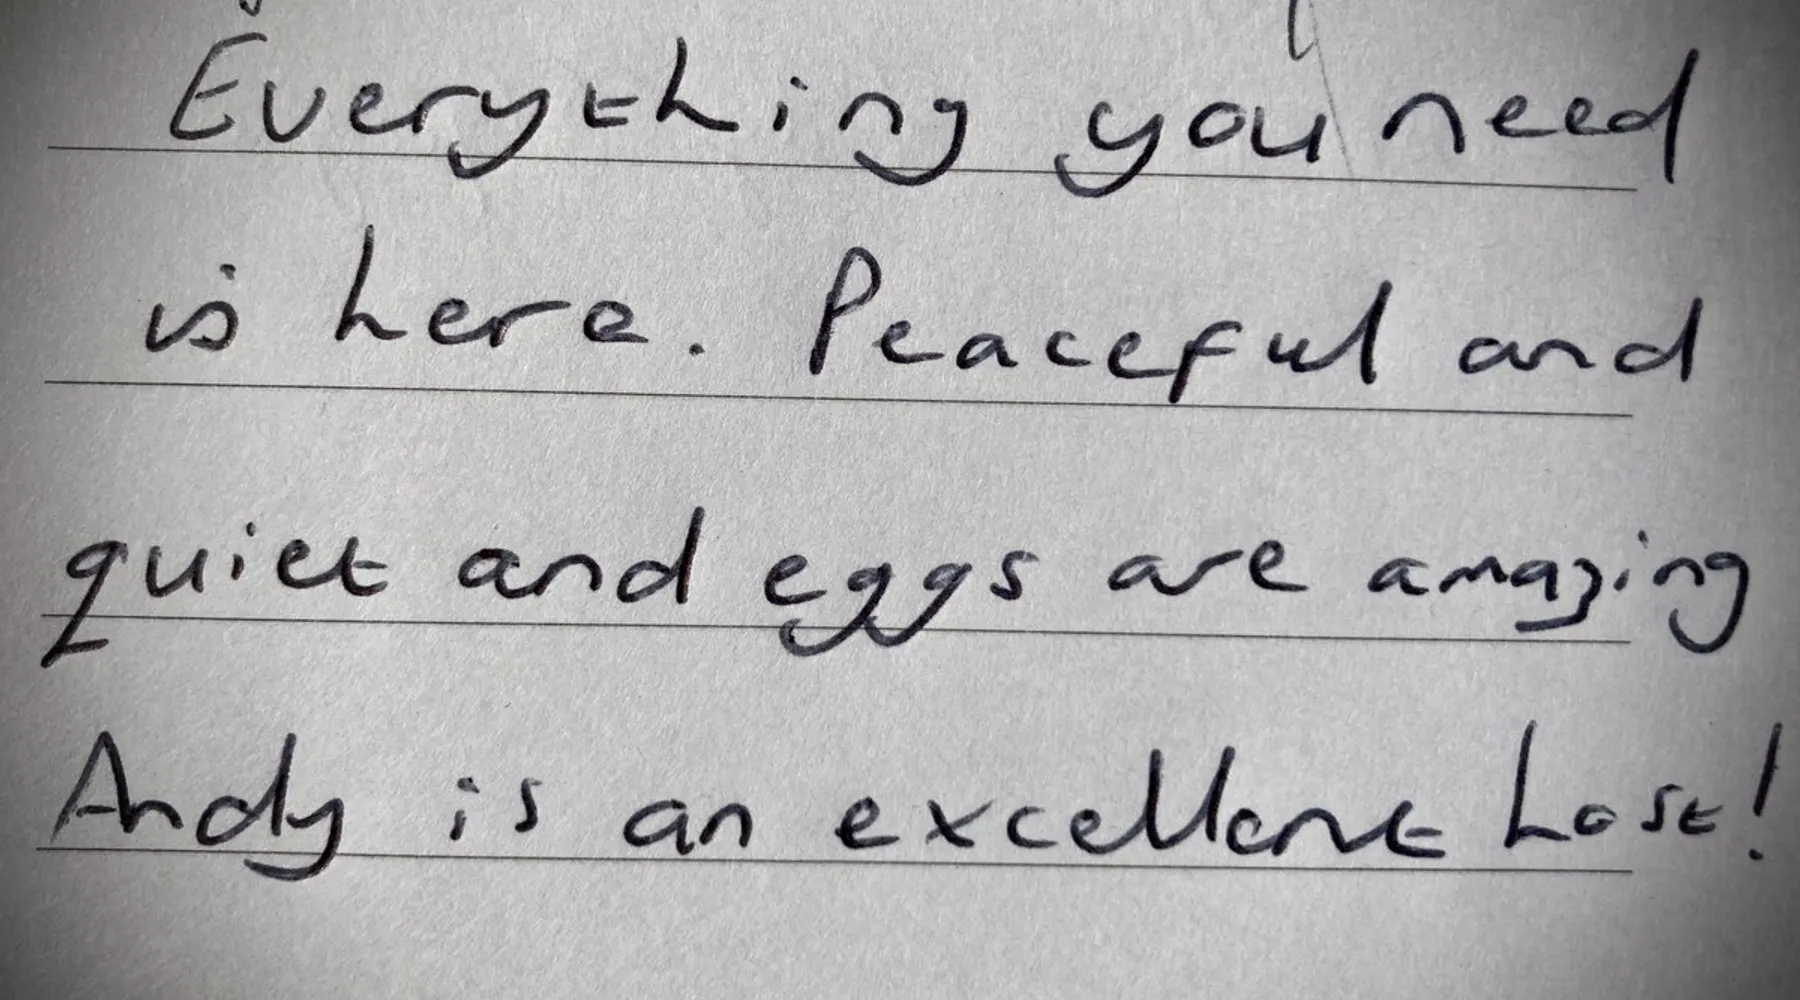 Everything you need
is here. Peaceful and
quiet and eggs are amazing
Andy is an excellent host!